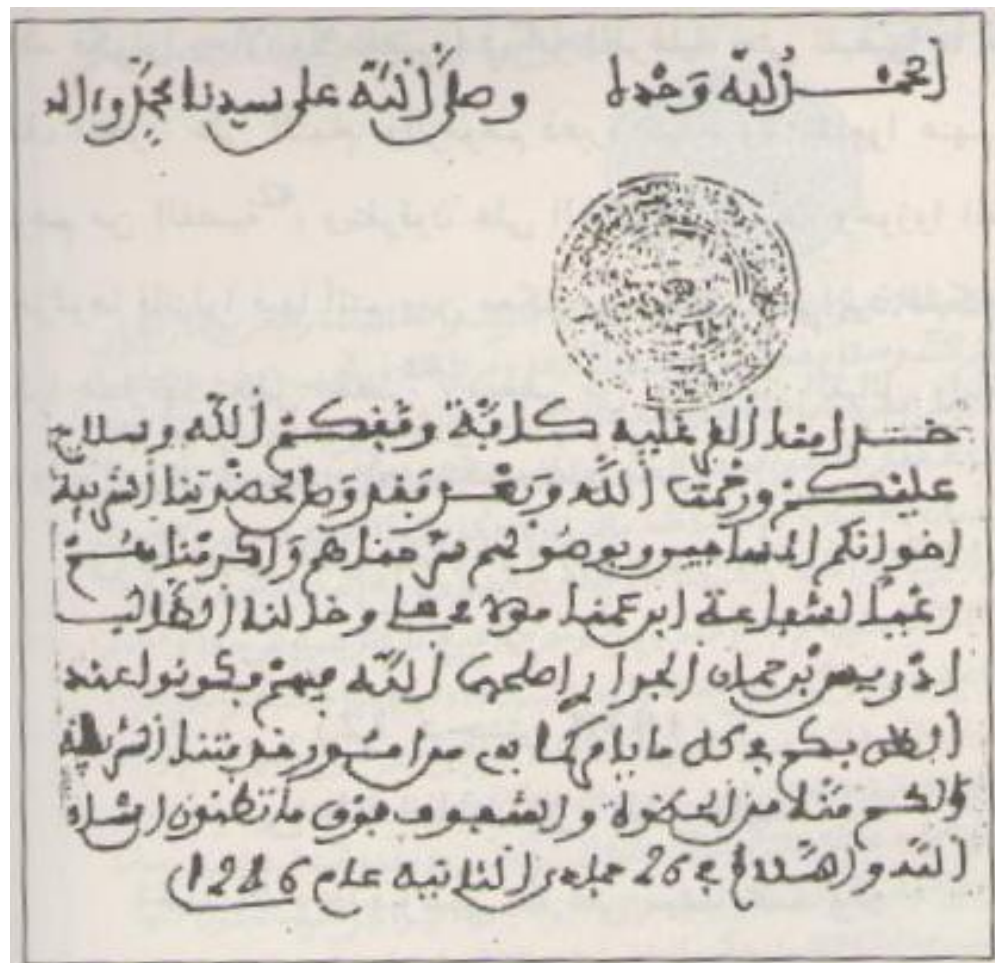 الحمد لله وحده وصلى الله على سيدنا محمد وءاله
خدامنا كافة وفقكم الله وسلام
عليكم ورحمت الله وبعد فقد وصل لحضرتنا الشريفة
اخوانكم المساجين وبوصولهم سرحناهم واكرمناهم
لشفاعة ابن عمنا وخالنا الطالب
ادريس بن حمان الجراري اصلحهم الله فيهم فكونوا عند
الظن بكم في كل ما يامركم به من امور خدمتنا الشريفة
ولكم منا من الحضوة والشفوف فوق ما تظنون انشاء
الله والسلام في 26 جمادى الثانية عام 1286